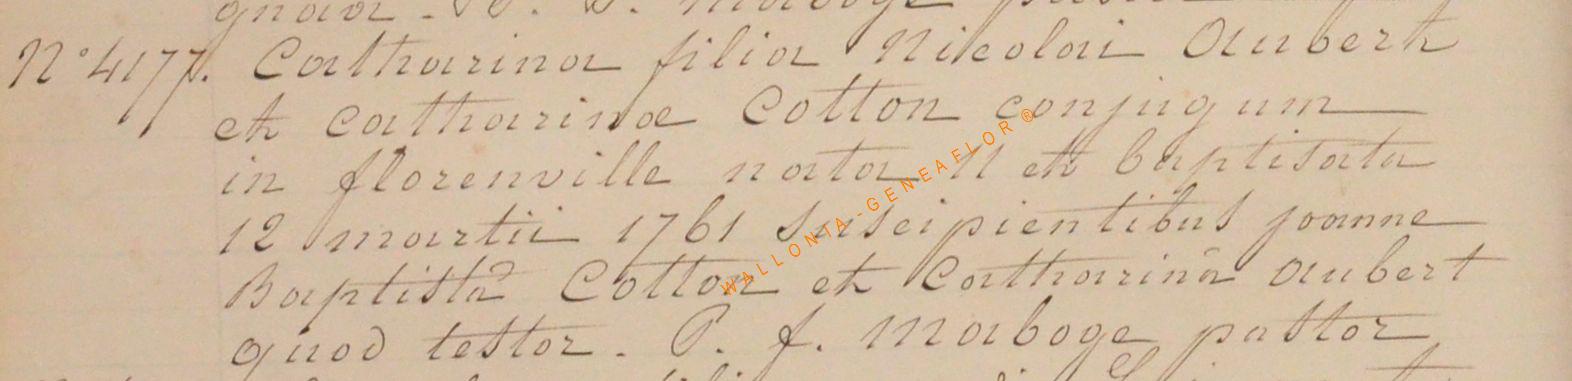 quod testor. P. J. Maboge pastor
N° 4177. Catharina filia Nicolai Aubert
et catharinæ Cotton conjugum
in florenville nata 11 et baptisata
12 martii 1761 Suscipientibus joanne
Baptistâ Cotton et Catharinâ Aubert
quod testor. P. J. Maboge pastor
WALLONIA-GENEAFLOR ®